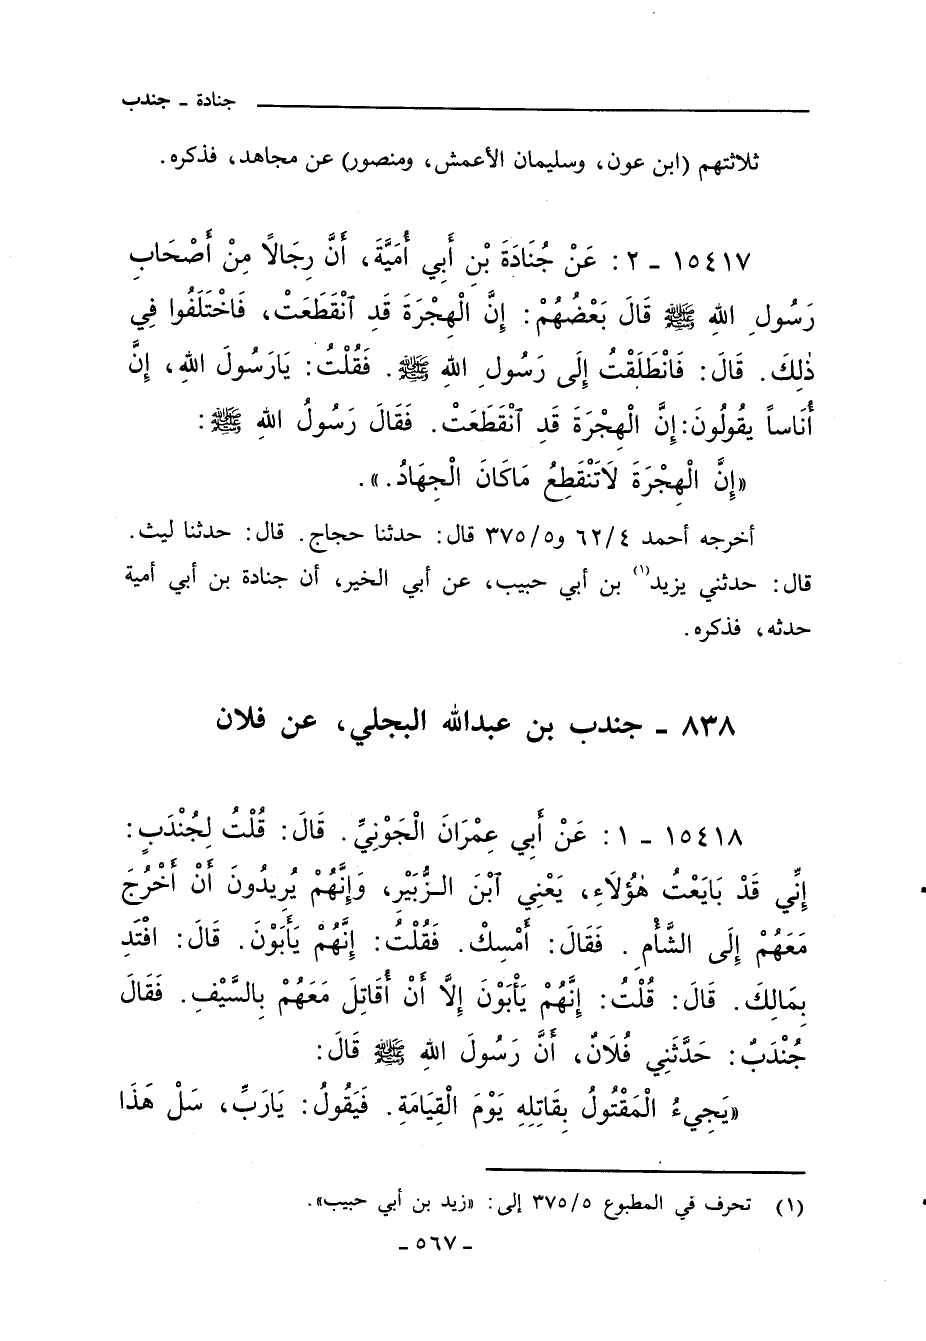 جنادة ـ جندب
ثلاثتهم (ابن عون، وسليمان الأعمش، ومنصور) عن مجاهد، فذكره.
١٥٤١٧ ـ ٢: عَنْ جُنَادَةَ بْنِ أَبِي أُمَيَّةَ، أَنَّ رِجَالًا مِنْ أَصْحَابِ
رَسُولِ اللهِ ﷺ قَالَ بَعْضُهُمْ: إِنَّ الْهِجْرَةَ قَدِ ٱنْقَطَعَتْ، فَاخْتَلَفُوا فِي
ذٰلِكَ. قَالَ: فَانْطَلَقْتُ إِلَى رَسُولِ اللهِ ﷺ. فَقُلْتُ: يَارَسُولَ اللهِ، إِنَّ
أُنَاساً يَقُولُونَ: إِنَّ الْهِجْرَةَ قَدِ ٱنْقَطَعَتْ. فَقَالَ رَسُولُ اللهِ ﷺ:
«إِنَّ الْهِجْرَةَ لَاتَنْقَطِعُ مَاكَانَ الْجِهَادُ.».
أخرجه أحمد ٦٢/٤ و٣٧٥/٥ قال: حدثنا حجاج. قال: حدثنا ليث.
قال: حدثني يزيد(١) بن أبي حبيب، عن أبي الخير، أن جنادة بن أبي أمية
حدثه، فذكره.
٨٣٨ ـ جندب بن عبدالله البجلي، عن فلان
١٥٤١٨ ـ ١: عَنْ أَبِي عِمْرَانَ الْجَوْنِيِّ. قَالَ: قُلْتُ لِجُنْدَبٍ:
إِنِّي قَدْ بَايَعْتُ هٰؤُلَاءِ، يَعْنِي ٱبْنَ الزُّبَيْرِ، وَإِنَّهُمْ يُرِيدُونَ أَنْ أَخْرُجَ
مَعَهُمْ إِلَى الشَّأْمِ. فَقَالَ: أَمْسِكْ. فَقُلْتُ: إِنَّهُمْ يَأْبَوْنَ. قَالَ: افْتَدِ
بِمَالِكَ. قَالَ: قُلْتُ: إِنَّهُمْ يَأْبَوْنَ إِلَّا أَنْ أُقَاتِلَ مَعَهُمْ بِالسَّيْفِ. فَقَالَ
جُنْدَبٌ: حَدَّثَنِي فُلَانٌ، أَنَّ رَسُولَ اللهِ ﷺ قَالَ:
«يَجِيءُ الْمَقْتُولُ بِقَاتِلِهِ يَوْمَ الْقِيَامَةِ. فَيَقُولُ: يَارَبِّ، سَلْ هَذَا
(١) تحرف في المطبوع ٣٧٥/٥ إلى: «زيد بن أبي حبيب».
ـ ٥٦٧ ـ